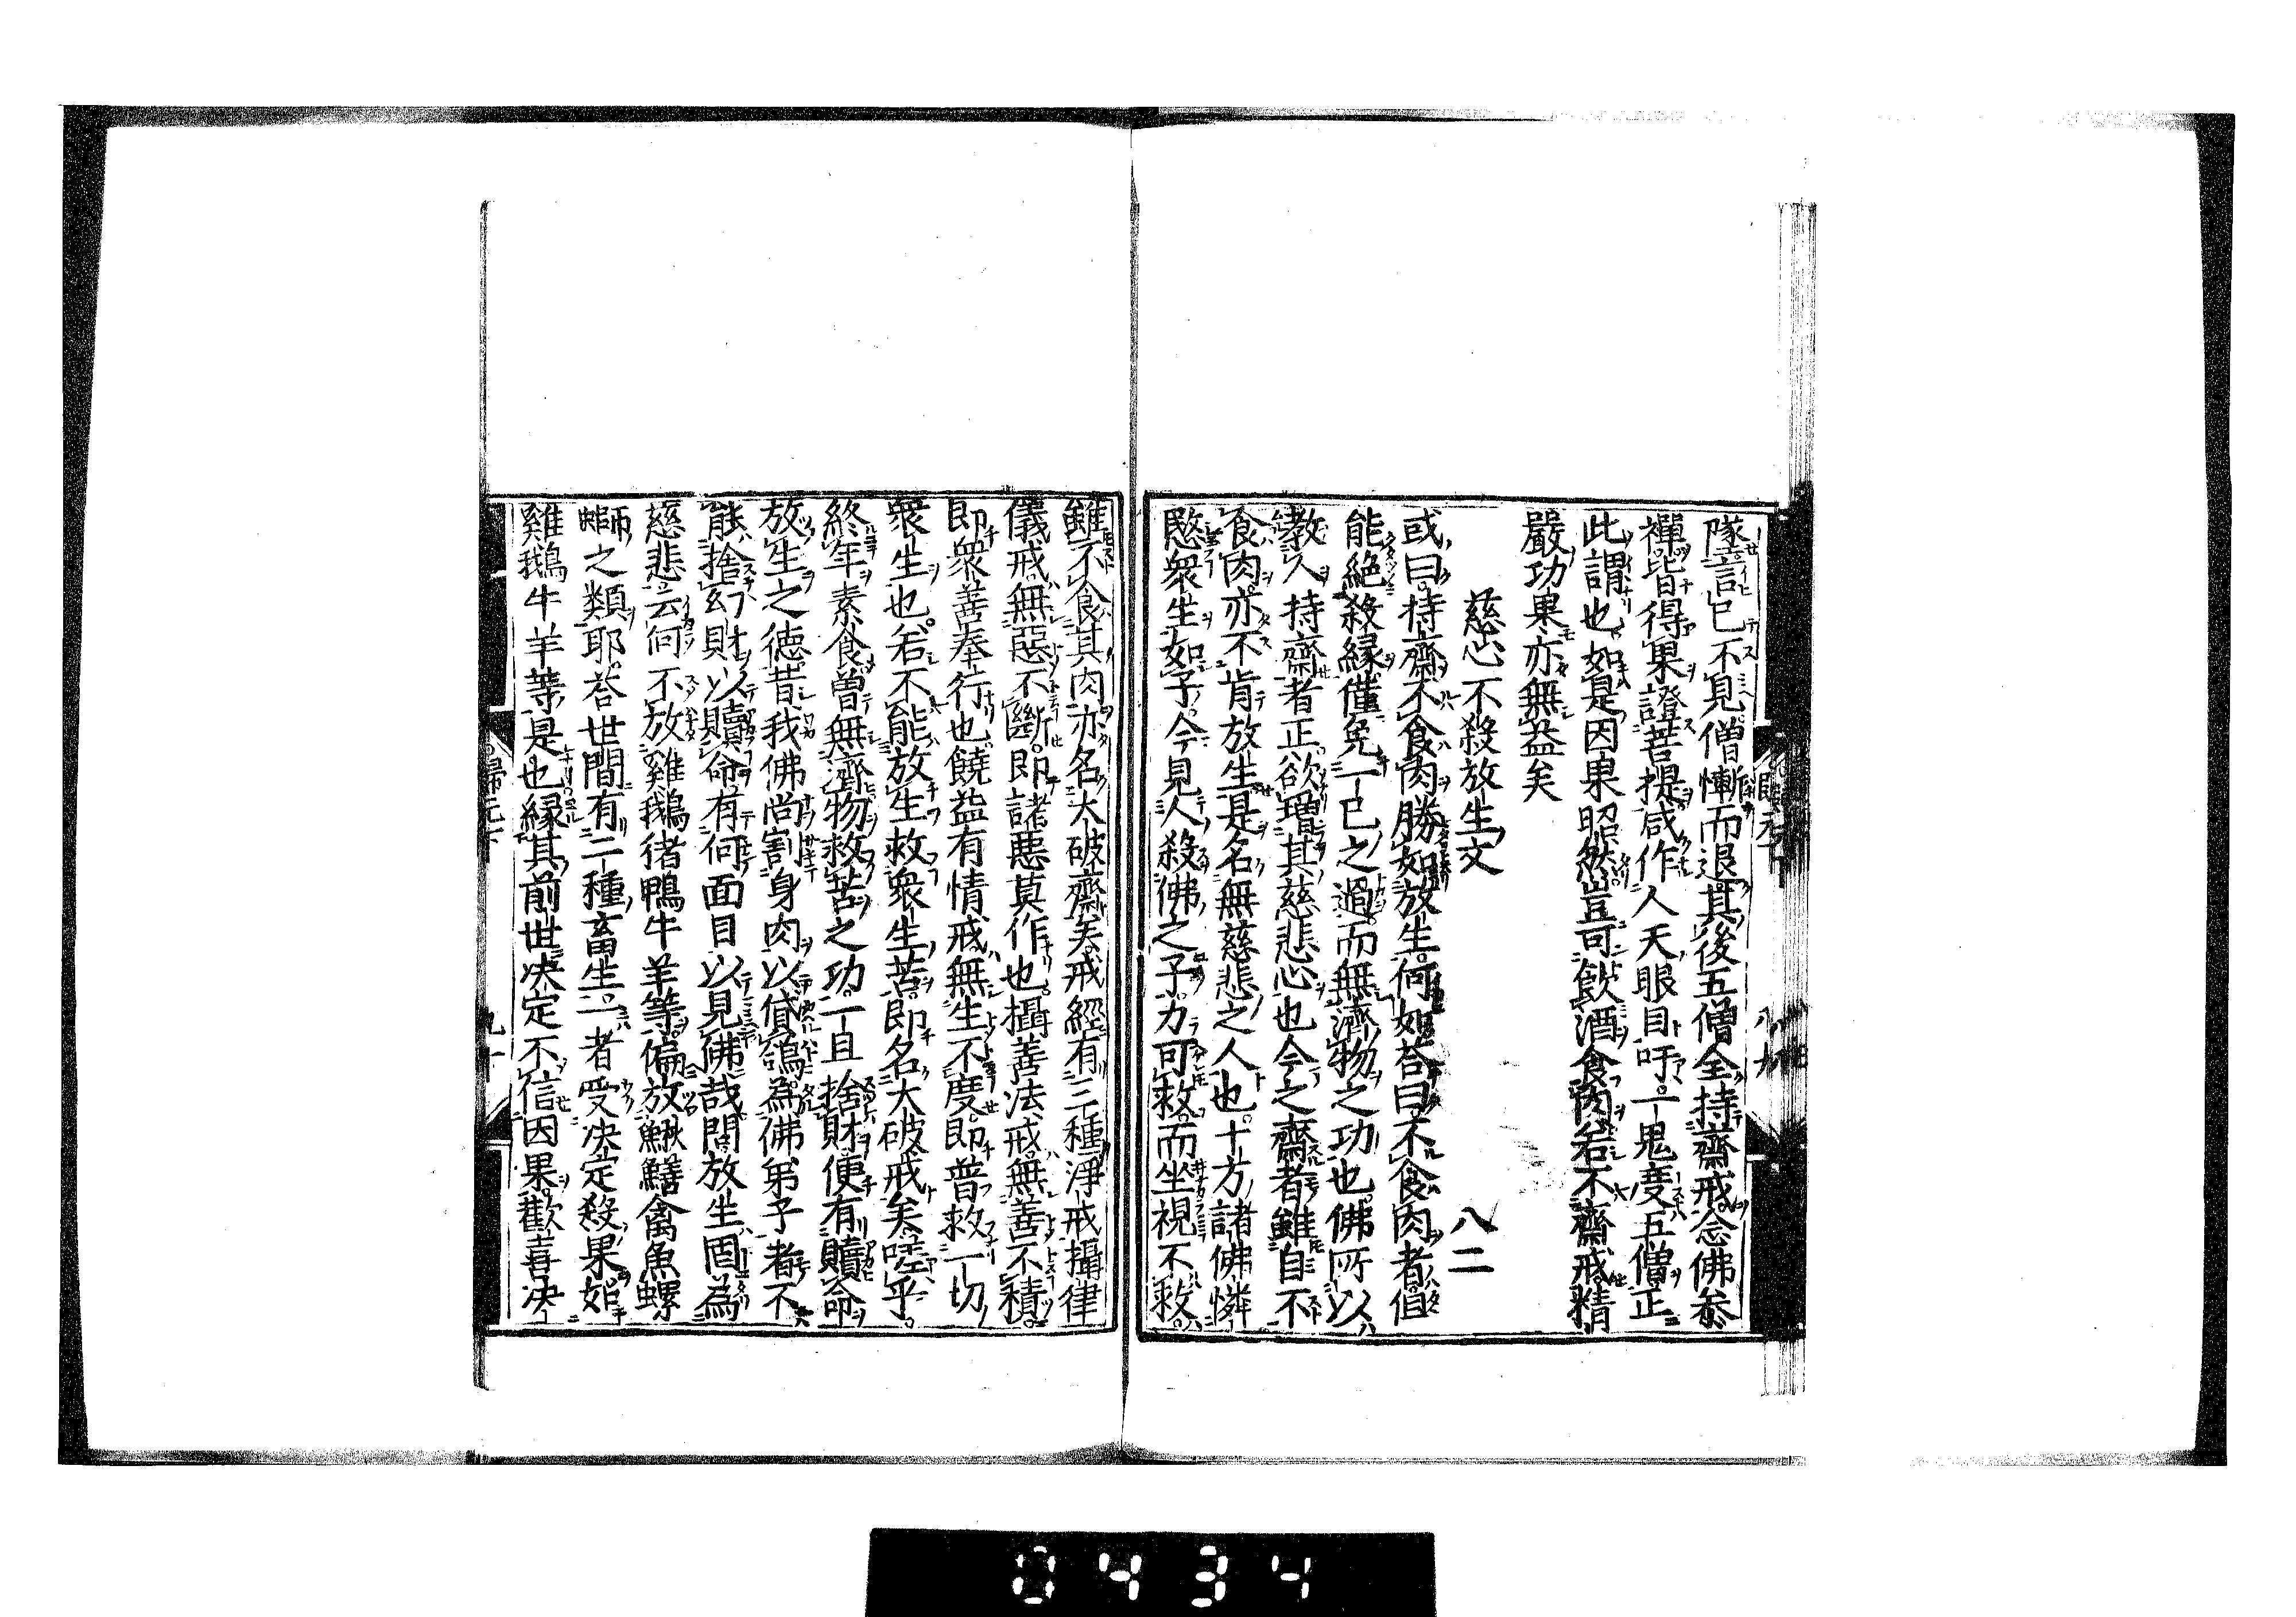 隊言已不見僧慚而退其後五僧全持齋戒念佛參
禪皆得果證菩提咸作人天眼目吁一鬼度五僧正
此謂也如是因果昭然豈可飲酒食肉若不齋戒精
嚴功果亦無益矣
慈心不殺放生文 八二
或曰持齋不食肉勝如放生何如荅曰不食肉者但
能絶殺縁僅免一己之過而無濟物之功也佛所以
教人持齋者正欲增其慈悲心也今之齋者雖自不
食肉亦不肯放生是名無慈悲之人也十方諸佛憐
愍衆生如子今見人殺佛之子力可救而坐視不救
雖不食其肉亦名大破齋矣戒經有三種淨戒攝律
儀戒無惡不斷即諸惡莫作也攝善法戒無善不積
即衆善奉行也饒益有情戒無生不度即普救一切
衆生也若不能放生救衆生苦即名大破戒矣嗟乎
終年素食曾無濟物救苦之功一旦捨財便有贖命
放生之德昔我佛尚割身肉以貸鴿為佛弟子者不
能捨幻財以贖命有何面目以見佛哉問放生固為
慈悲云何不放雞鵝猪鴨牛羊等偏放鰍鱔禽魚螺
螄之類耶荅世間有二種畜生一者受决定殺果如
雞鵝牛羊等是也縁其前世决定不信因果歡喜决
歸元下
九十